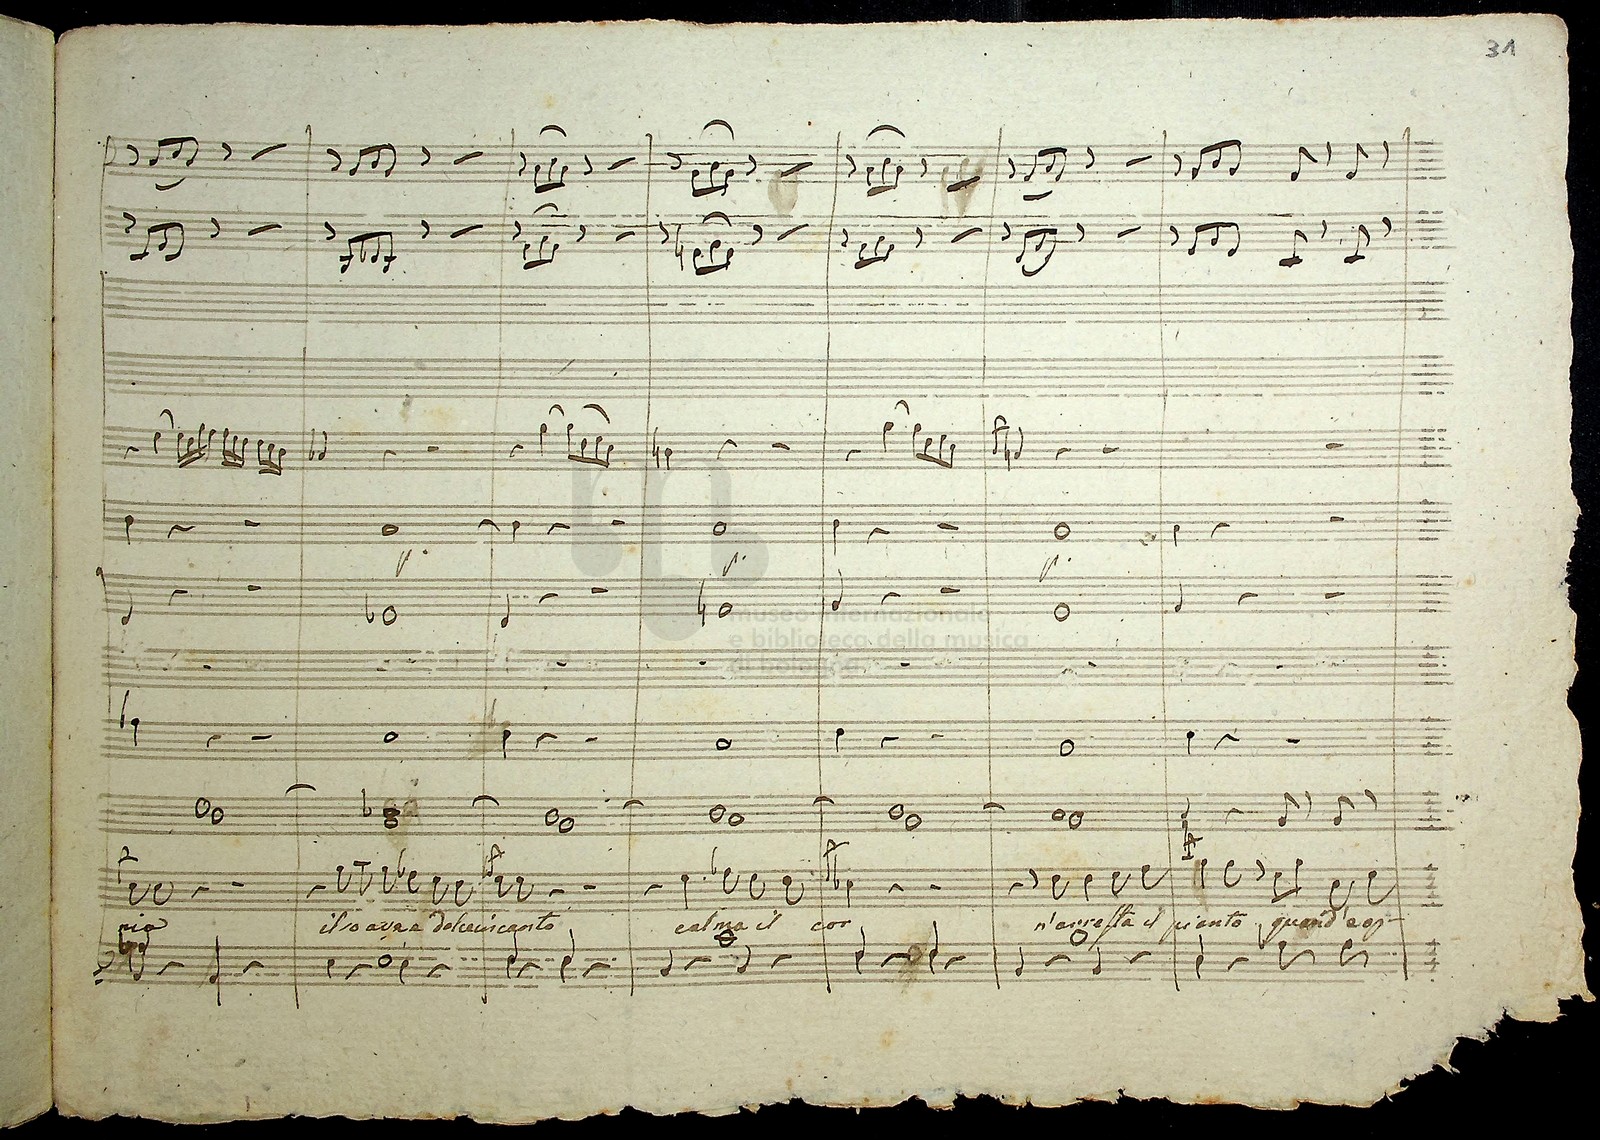 31
p.
p.
p.
museo internazionale
e biblioteca della musica
di bologna
nia il soave e dolce incanto calma il cor n'arresta il pianto quand'è op-